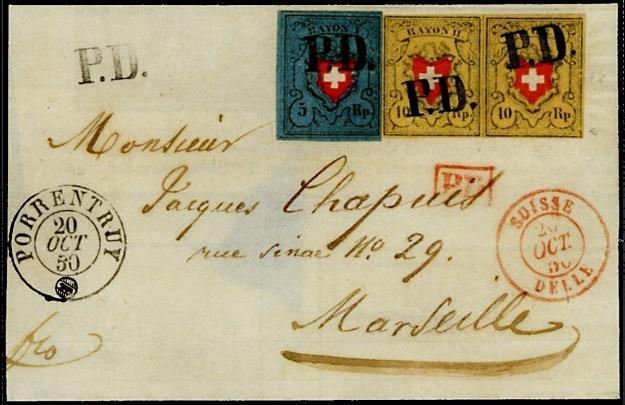 P.D.
RAYON I
P.D.
5 Rp
RAYON II
P.D.
10 Rp
P.D.
10 Rp
Monsieur
Jacques Chapuis
P.D.
rue sinae No 29.
Marseille
PORRENTRUY
20
OCT
50
SUISSE
20
OCT.
50
DELLE
fco